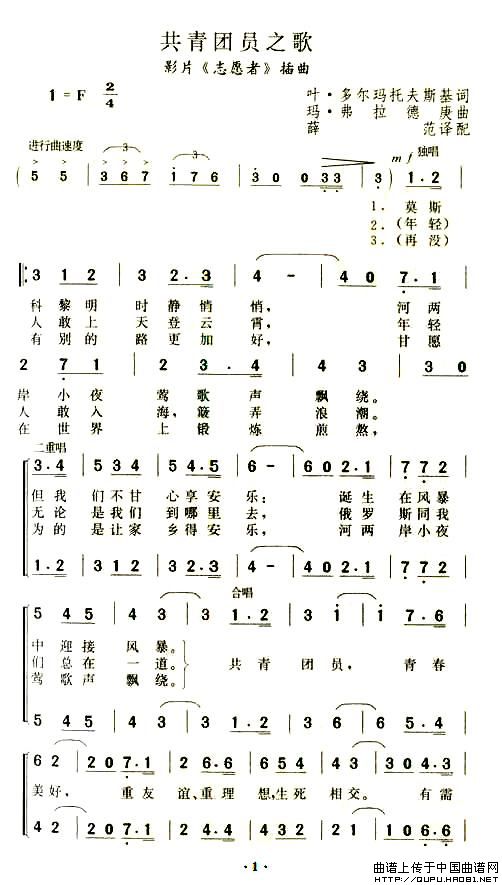 共青团员之歌
影片《志愿者》插曲
1=F 2/4
叶·多尔玛托夫斯基词
玛·弗拉德庚曲
薛范译配
进行曲速度 3 3 mf 独唱
( 5 5 | 3 6 7 1 7 6 | 3 0 0 3 3 | 3 ) 1·2 |
1. 莫斯
2.(年轻)
3.(再没)
3 1 2 | 3 2·3 | 4 - | 4 0 7·1 |
科黎明时静悄悄, 河两
人敢上天登云霄, 年轻
有别的路更加好, 甘愿
2 7 1 | 2 3·4 | 4 3 | 3 0
岸小夜莺歌声飘绕。
人敢入海,簸弄浪潮。
在世界上锻炼煎熬,
二重唱
3·4 | 5 3 4 | 5 4·5 | 6 - | 6 0 2·1 | 7 7 2 |
但我们不甘心享安乐; 诞生在风暴
无论是我们到哪里去, 俄罗斯同我
为的是让家乡得安乐, 河两岸小夜
1·2 | 3 1 2 | 3 2·3 | 4 - | 4 0 2·1 | 7 7 2 |
合唱
5 4 5 | 4 3 | 3 1·2 | 3 i | i 7·6 |
中迎接风暴。
们总在一道。 共青团员,青春
莺歌声飘绕。
5 4 5 | 4 3 | 3 1·2 | 3 6 | 6 5·4 |
6 2 | 2 0 7·1 | 2 6·6 | 6 5 4 | 4 3 | 3 0 4·3 |
美好, 重友谊、重理想,生死相交。 有需
4 2 | 2 0 7·1 | 2 2·2 | 2 2 2 | 2 1 | 1 0 6·6 |
·1·
曲谱上传于中国曲谱网
HTTP://QUPU.HAO81.NET